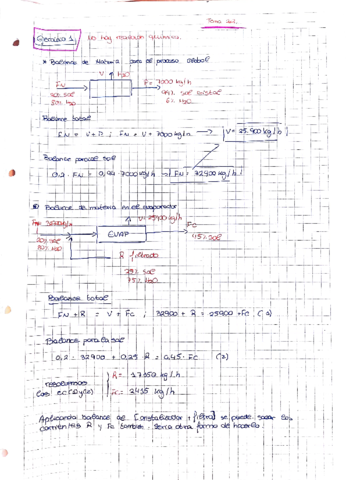 Tema 4.
Ejercicio 1
No hay reacción química.
* Balance de Materia para el proceso global
V H2O
FN
20% sal
80% H2O
P = 7000 kg/h
sal cristal
H2O
Balance total
FN = V + P ; FN = V + 7000 kg/h → V = 25.900 kg/h
Balance parcial sal
0,2 · FN = 0,94 · 7000 kg/h → FN = 32900 kg/h
Balance de materia en el evaporador
V = 25900 kg/h
FN = 32900 kg/h
20% sal
80% H2O
EVAP
FC
45% sal
R filtrado
25% sal
75% H2O
Balance total
FN + R = V + FC ; 32900 + R = 25900 + FC (1)
Balance para la sal
0,2 · 32900 + 0,25 R = 0,45 · FC (2)
resolvemos
las ec (1) y (2)
R = kg/h
FC = kg/h
Aplicando balance al [cristalizador + filtro] se puede sacar las
corrientes R y Fc también. Sería otra forma de hacerlo.